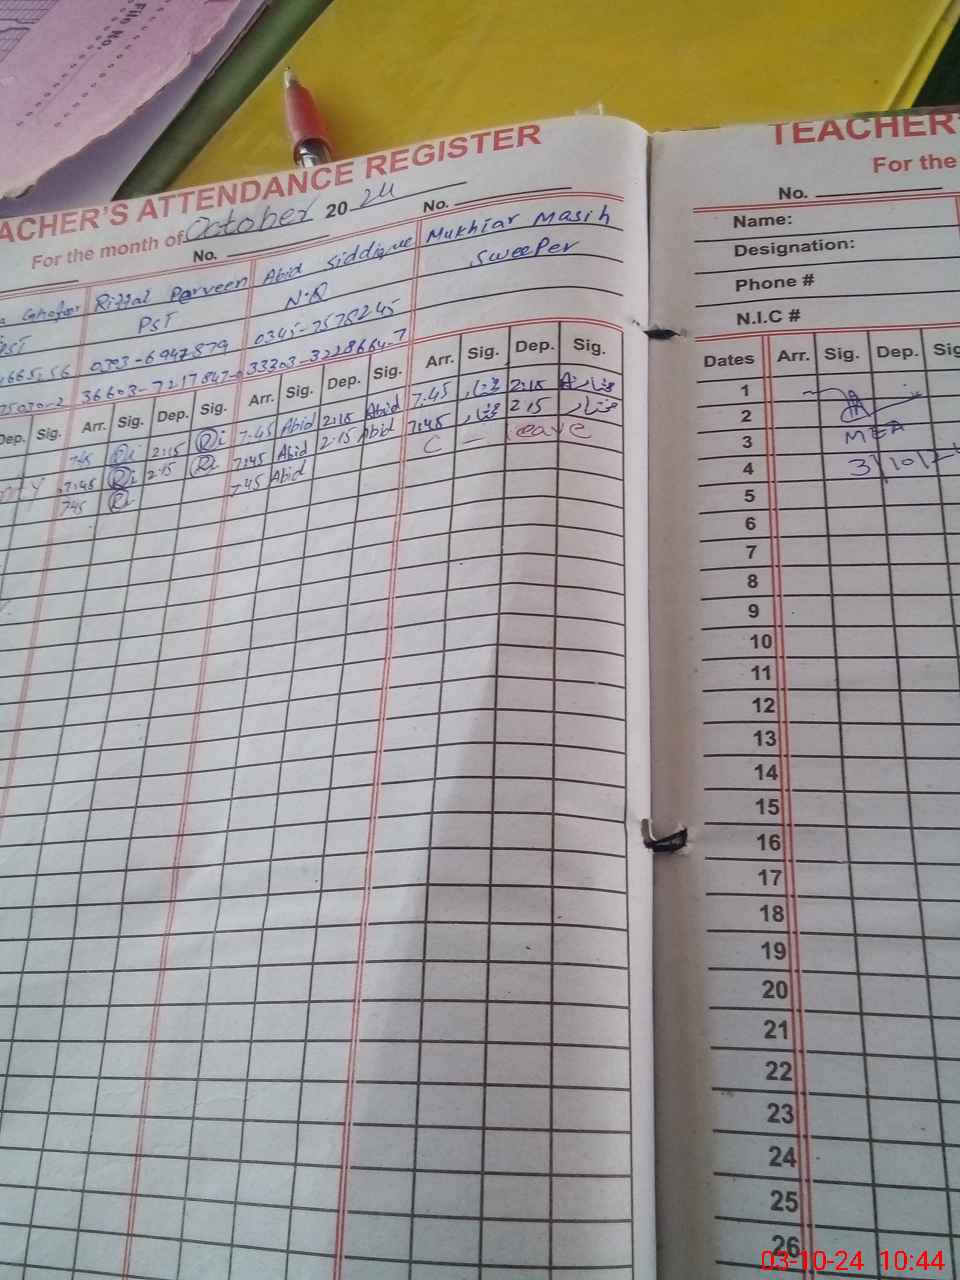 FILE NO.
TEACHER'S ATTENDANCE REGISTER
For the month of October 2024
No. No.
Parveen Abid Siddique Mukhtar Masih
PST PST N.Q Sweeper
0345-7575245
Dep. Sig. Arr. Sig. Dep. Sig. Arr. Sig. Dep. Sig. Arr. Sig. Dep. Sig.
745 Ri 2:15 Ri 7:45 Abid 2:15 Abid 7:45 مختار 2:15 مختار
7:45 Ri 2:15 Ri 7:45 Abid 2:15 Abid 7:45 مختار 2:15 مختار
745 Ri 7:45 Abid C - leave
TEACHER'
For the
No.
Name:
Designation:
Phone #
N.I.C #
Dates Arr. Sig. Dep. Sig
1
2
3 MEA
4 3/10/24
5
6
7
8
9
10
11
12
13
14
15
16
17
18
19
20
21
22
23
24
25
26
03-10-24 10:44